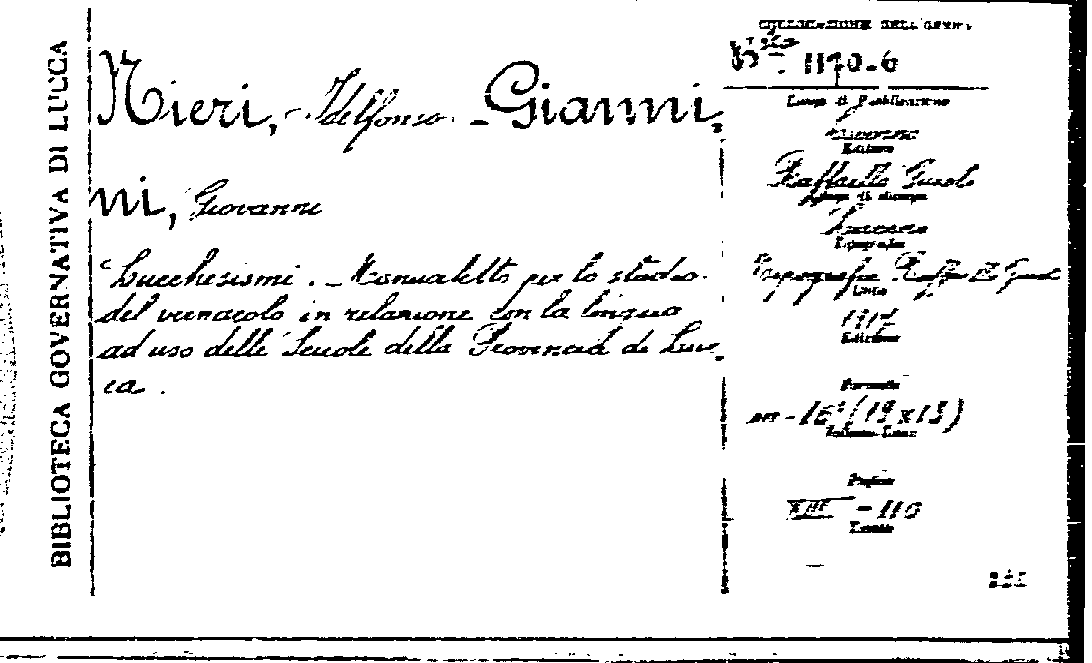 BIBLIOTECA GOVERNATIVA DI LUCCA
Nieri, Idelfonso - Gianni,
ni, Giovanni
Lucchesismi. - Manualetto per lo studio
del vernacolo in relazione con la lingua
ad uso delle Scuole della Provincia di Luc,
ca.
COLLOCAZIONE DELL'OPERA
1170-6
Luogo di Pubblicazione
Livorno
Editore
Raffaello Giusti
Luogo di stampa
Livorno
Tipografia
Tipografia Raffaello Giusti
Anno
Edizione
Formato
16° (19x13)
Volume-Tomo
Pagine
XIII - 110
Tavole